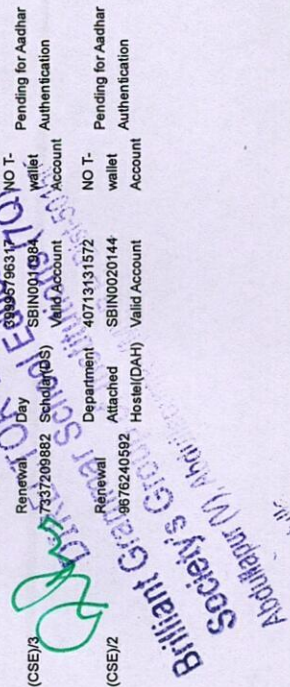 (CSE)/3
Renewal
7337209882
Day
Scholar(DS)
SBIN0010984
Valid Account
NO T-
wallet
Account
Pending for Aadhar
Authentication
(CSE)/2
Renewal
9676240592
Department
Attached
Hostel(DAH)
40713131572
SBIN0020144
Valid Account
NO T-
wallet
Account
Pending for Aadhar
Authentication
Grammar School
Brilliant Grammar
Society's Group
Abdullapur (V)